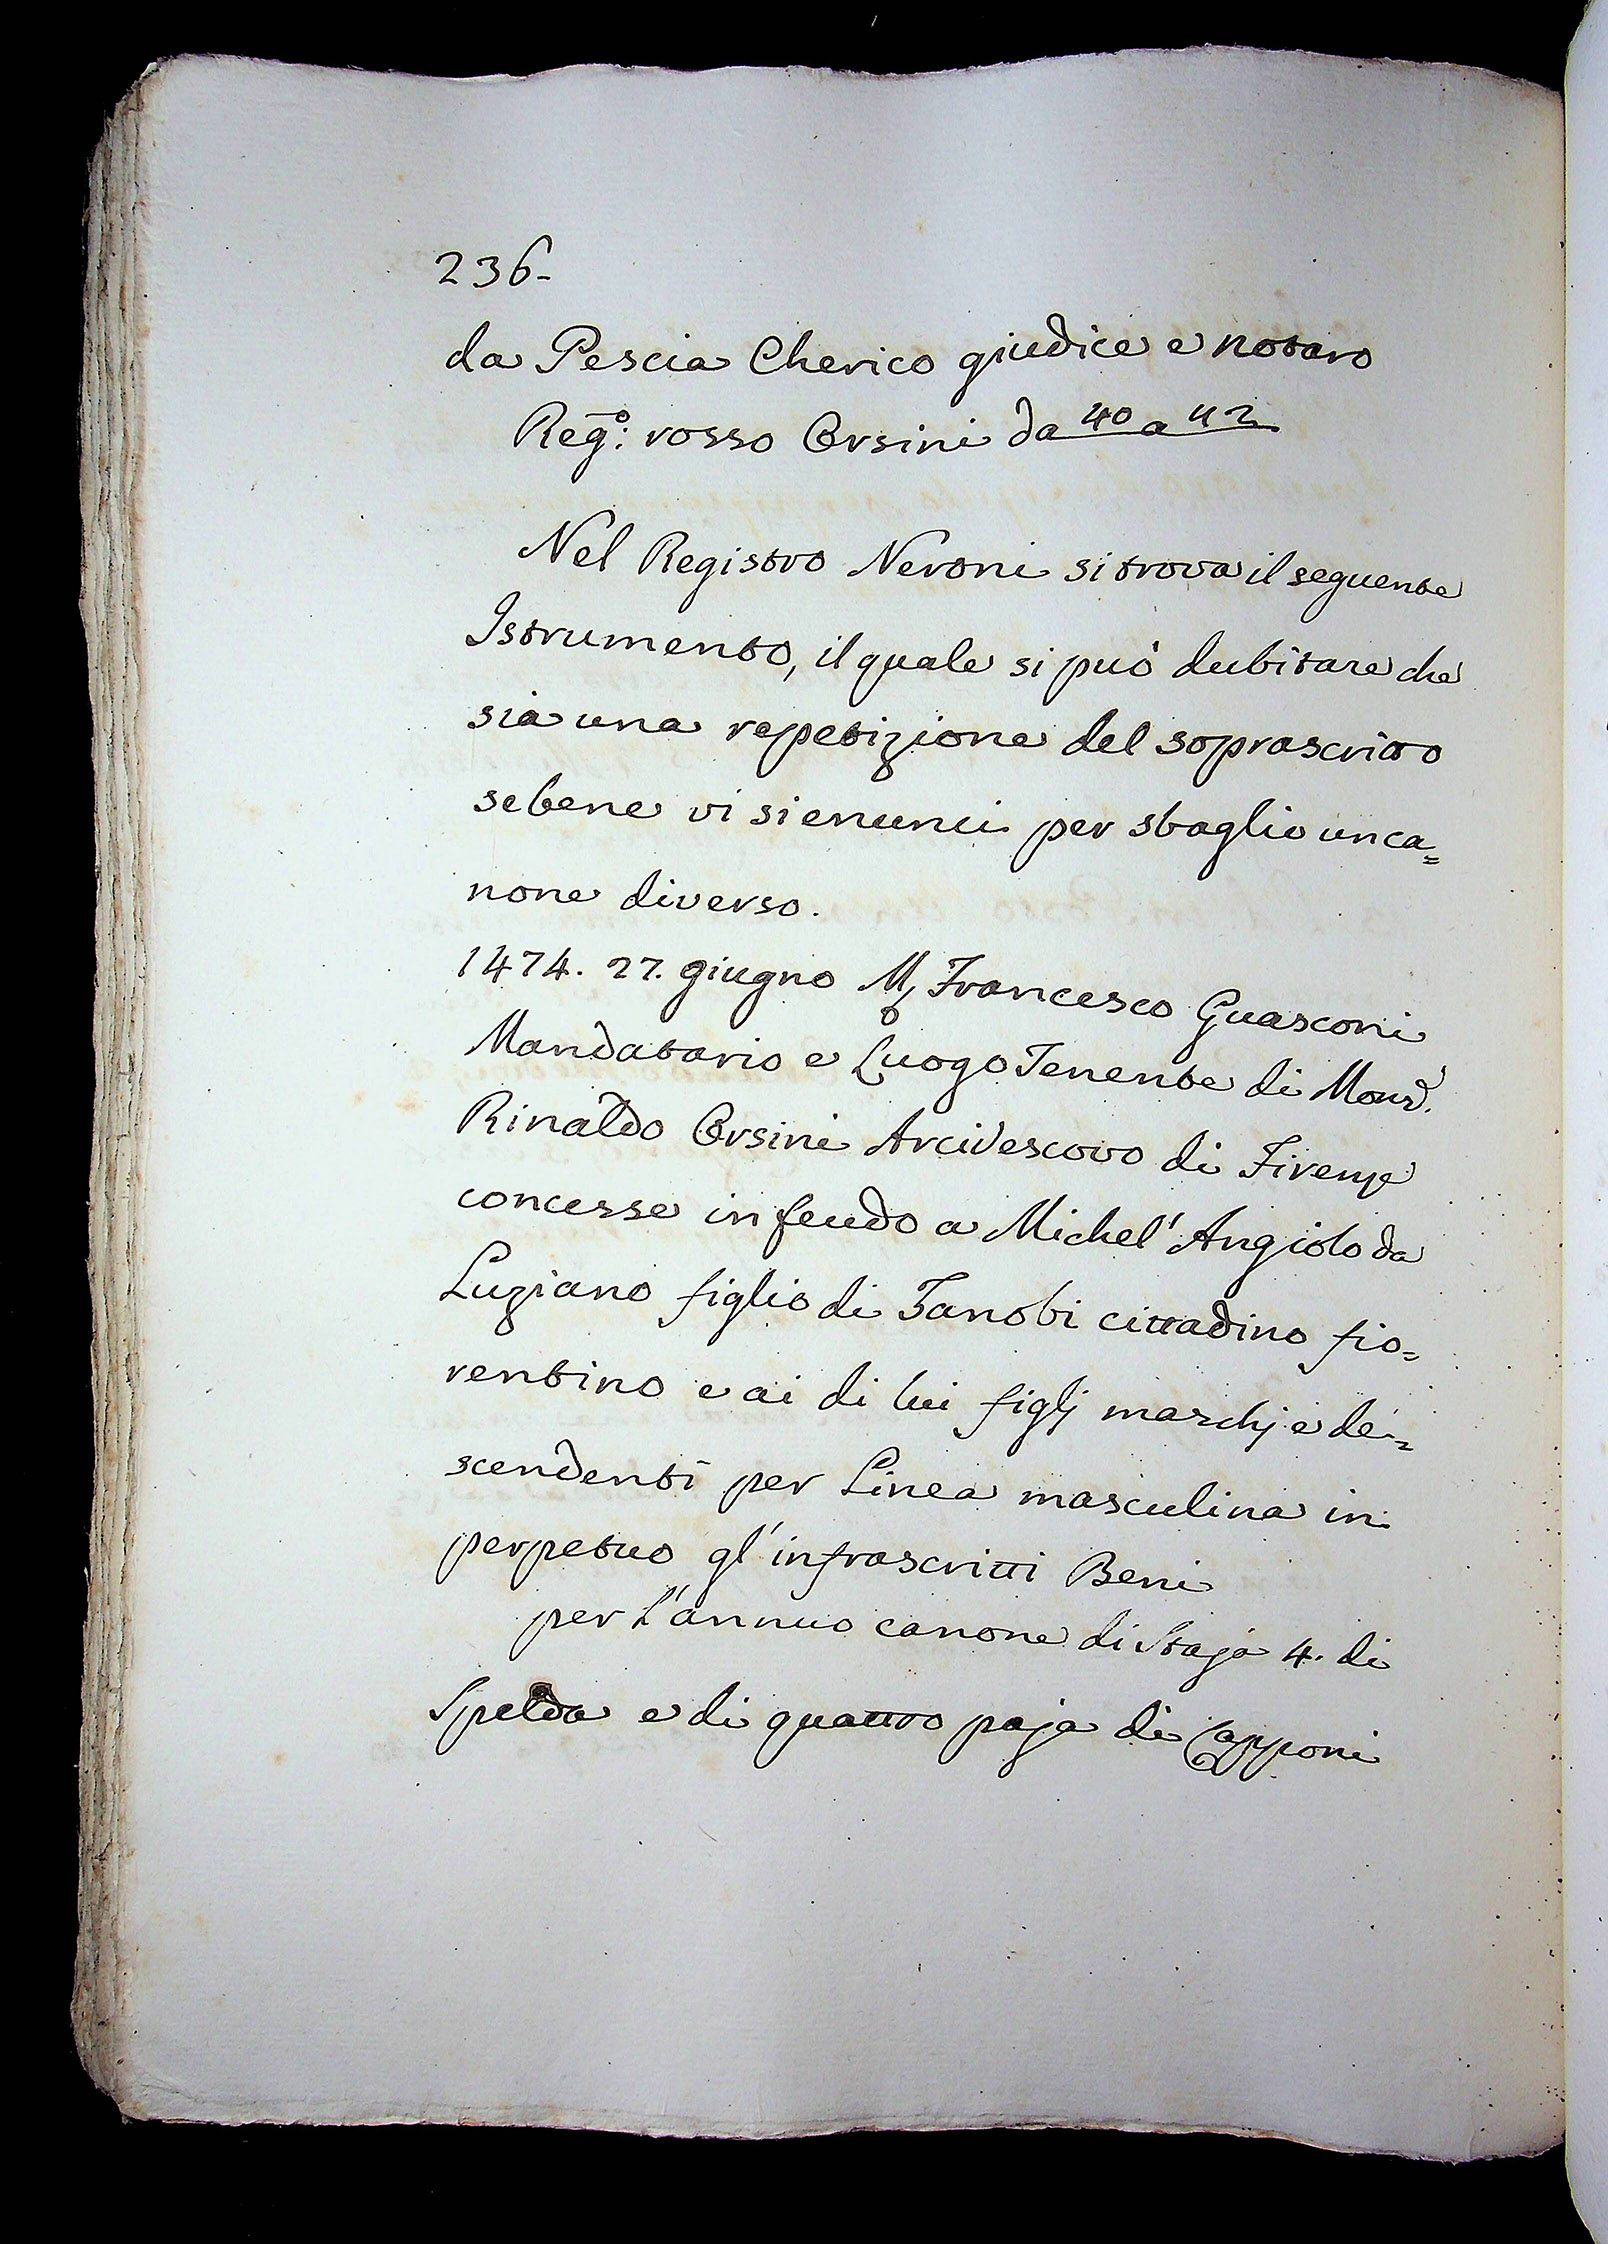 236-
da Pescia Cherico giudice e notaro
Reg:º rosso Orsini da 40 a 42
Nel Registro Neroni si trova il seguente
Istrumento, il quale si può dubitare che
sia una repetizione del soprascritto
sebene vi si enunci per sbaglio un ca=
none diverso.
1474. 27. giugno M, Francesco Guasconi
Mandatario e Luogo Tenente di Monsr.
Rinaldo Orsini Arcivescovo di Firenze
concesse in feudo a Michel' Angiolo da
Luziano figlio di Zanobi cittadino fio=
rentino e ai di lui figlj maschj e de=
scendenti per Linea masculina in
perpetuo gl'infrascritti Beni
per l'annuo canone di Staja 4. di
Spelda e di quattro paja di Capponi